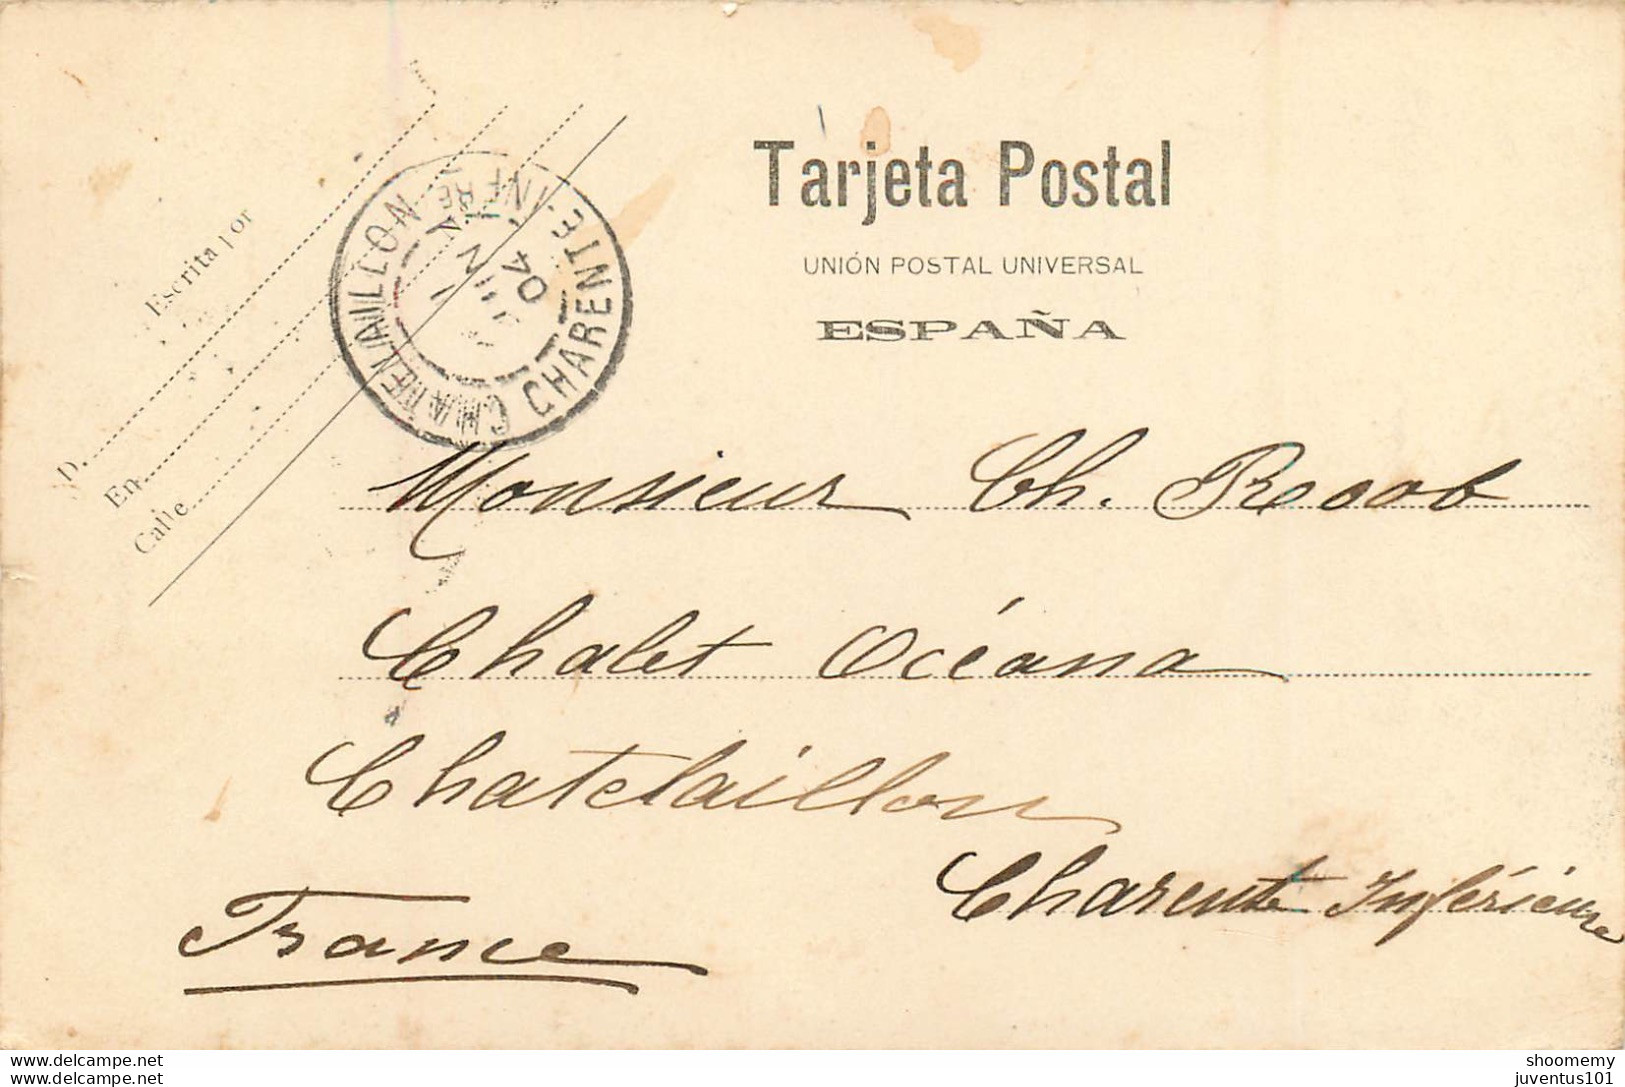 Tarjeta Postal
UNIÓN POSTAL UNIVERSAL
ESPAÑA
Escrita por
D.
En
Calle
N.
CHATELAILLON
CHARENTE-INFRE
JUIN
04
Monsieur Ch.
Chalet Océana
Chatelaillon
Charente Inférieure
France
www.delcampe.net
www.delcampe.net
shoomemy
juventus101